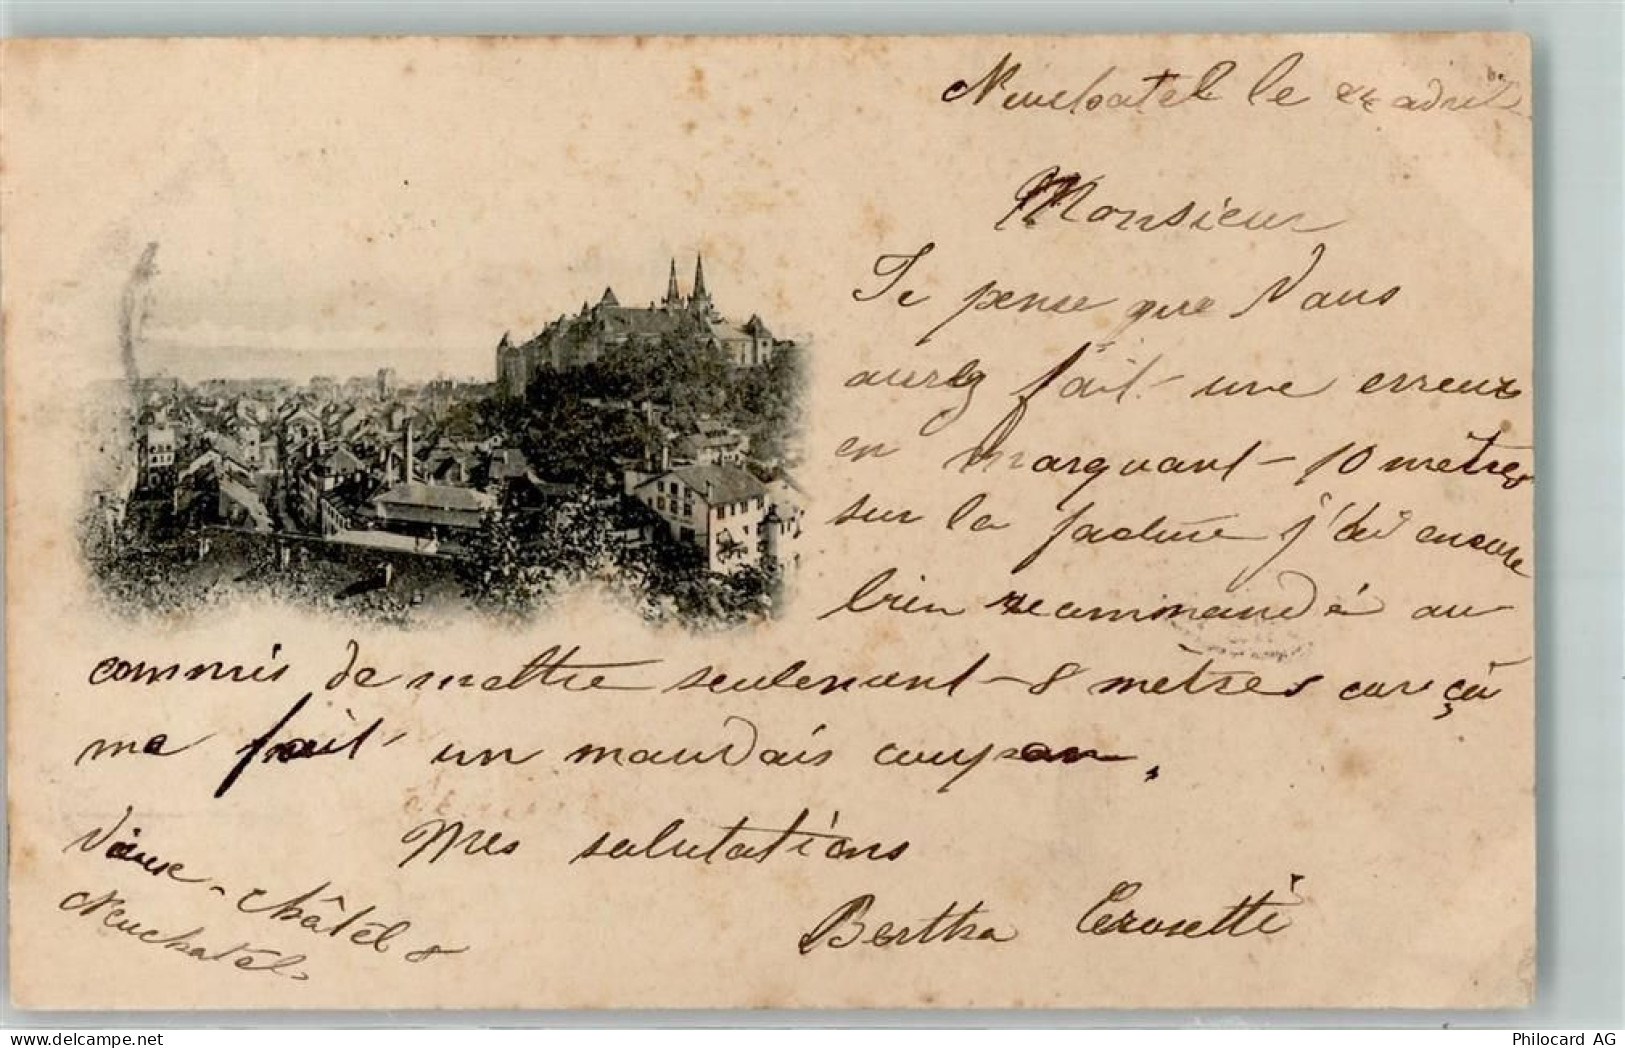 Neuchatel le 24 avril
Monsieur
Je pense que Vous
aurez fait une erreur
en marquant 10 mètres
sur la facture j'ai encore
bien recommandé au
commis de mettre seulement 8 metres car çà
me fait un mauvais coupon.
Mes salutations
Bertha
Vieux-Châtel 8
Neuchatel
Philocard AG